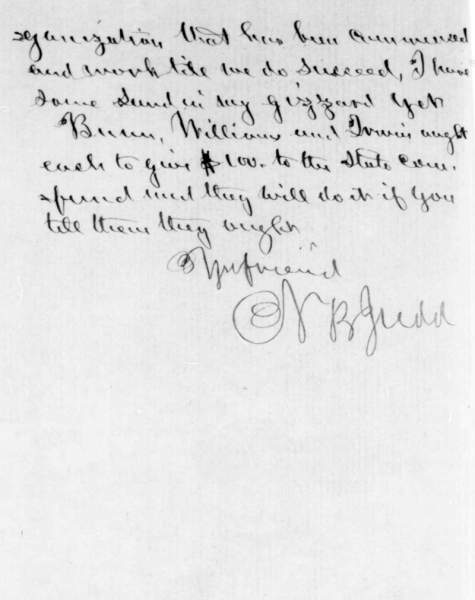 rganization that has been commenced
and work till we do succeed, I have
some sand in my gizzard yet
Bunn, Williams and Irwin ought
each to give $100. to the State com.
fund and they will do it if you
tell them they ought
Yr friend
N B Judd